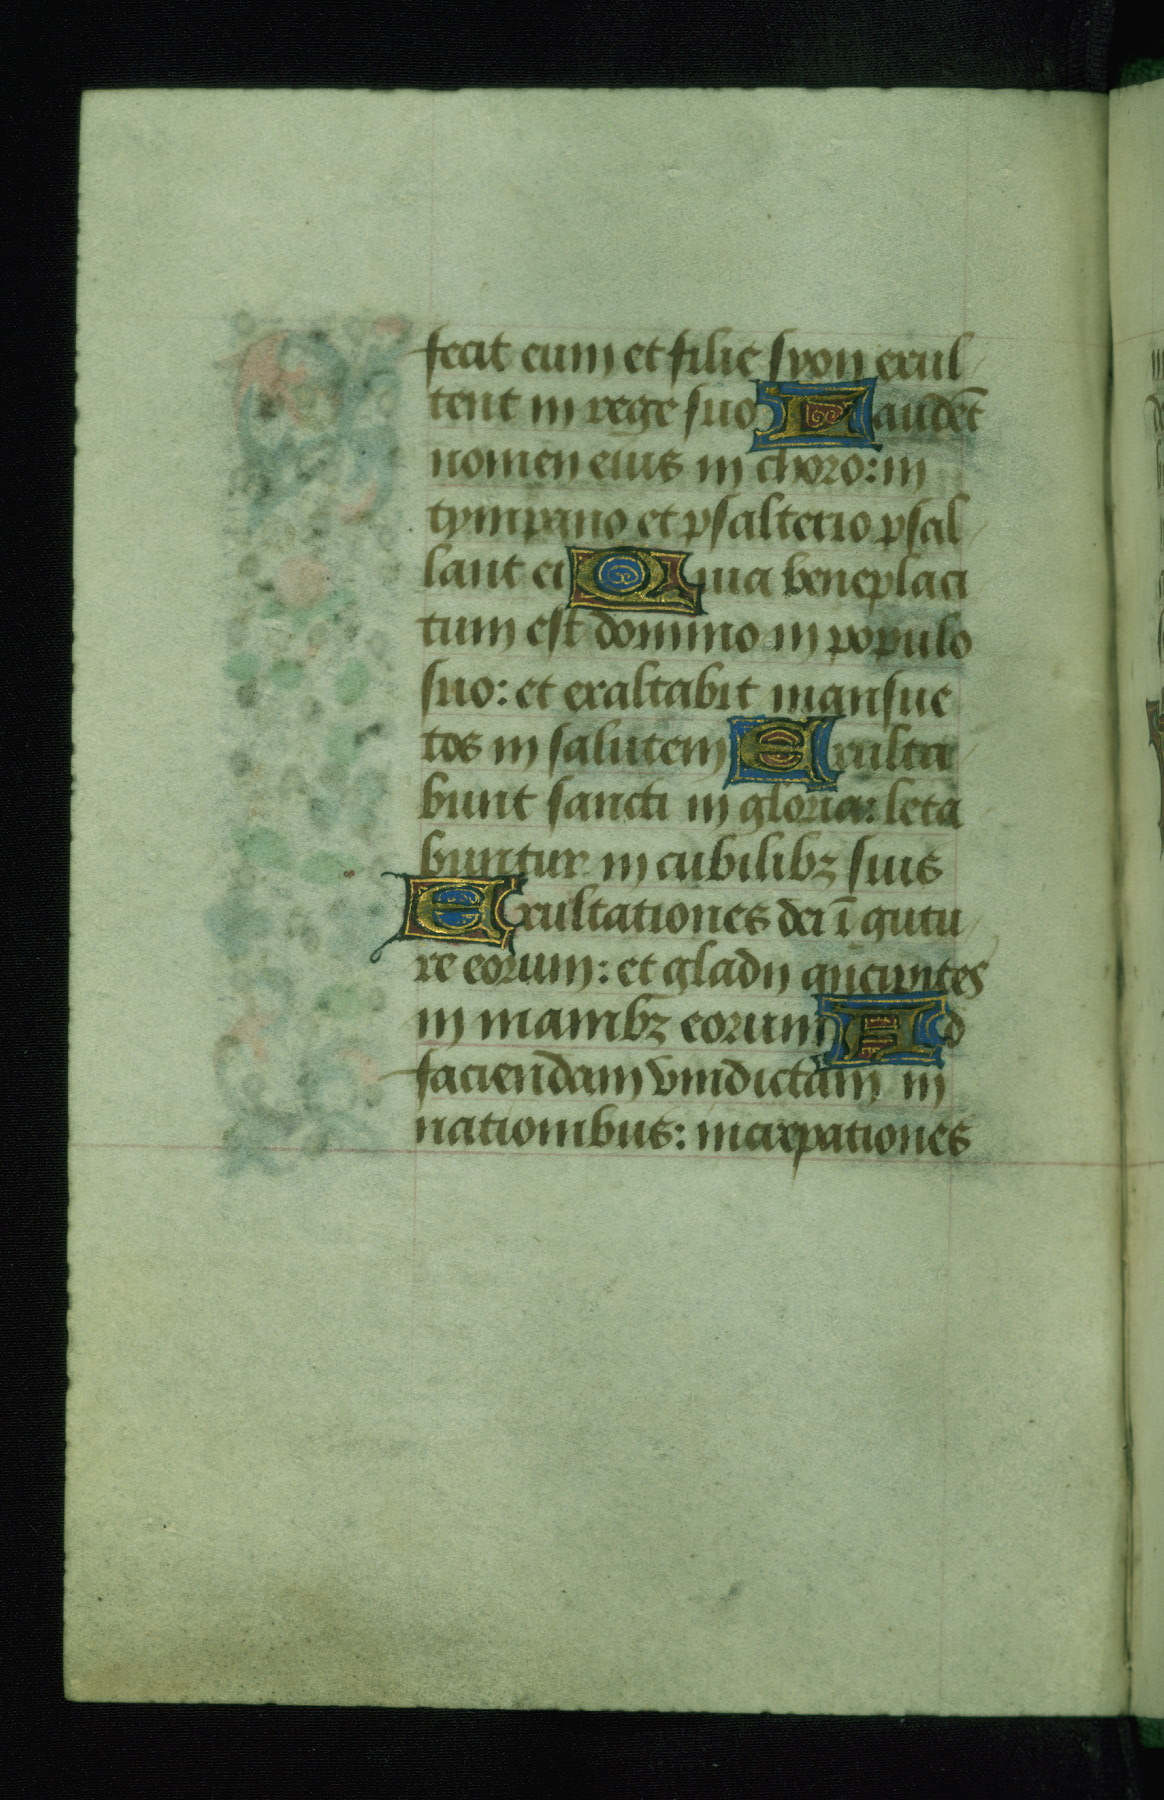 fecit eum et filie syon exul
tent in rege suo Laudēt
nomen eius in choro: in
tympano et psalterio psal
lant ei Quia beneplaci
tum est domino in populo
suo: et exaltabit mansue
tos in salutem Exulta
bunt sancti in gloria: leta
buntur in cubilibꝫ suis
Exultationes dei ī gutu
re eorum: et gladii ancipites
in manibꝫ eorum Ad
faciendam vindictam in
nationibus: increpationes